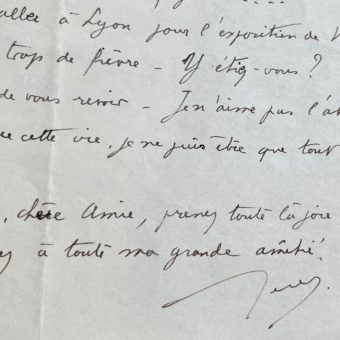 allée à Lyon pour l'exposition de
trop de fièvre - Y étiez-vous ?
de vous revoir - Je n'aime pas l'at
que cette vie, je ne puis être que tout
, chère Amie, prenez toute la joie
ez à toute ma grande amitié.